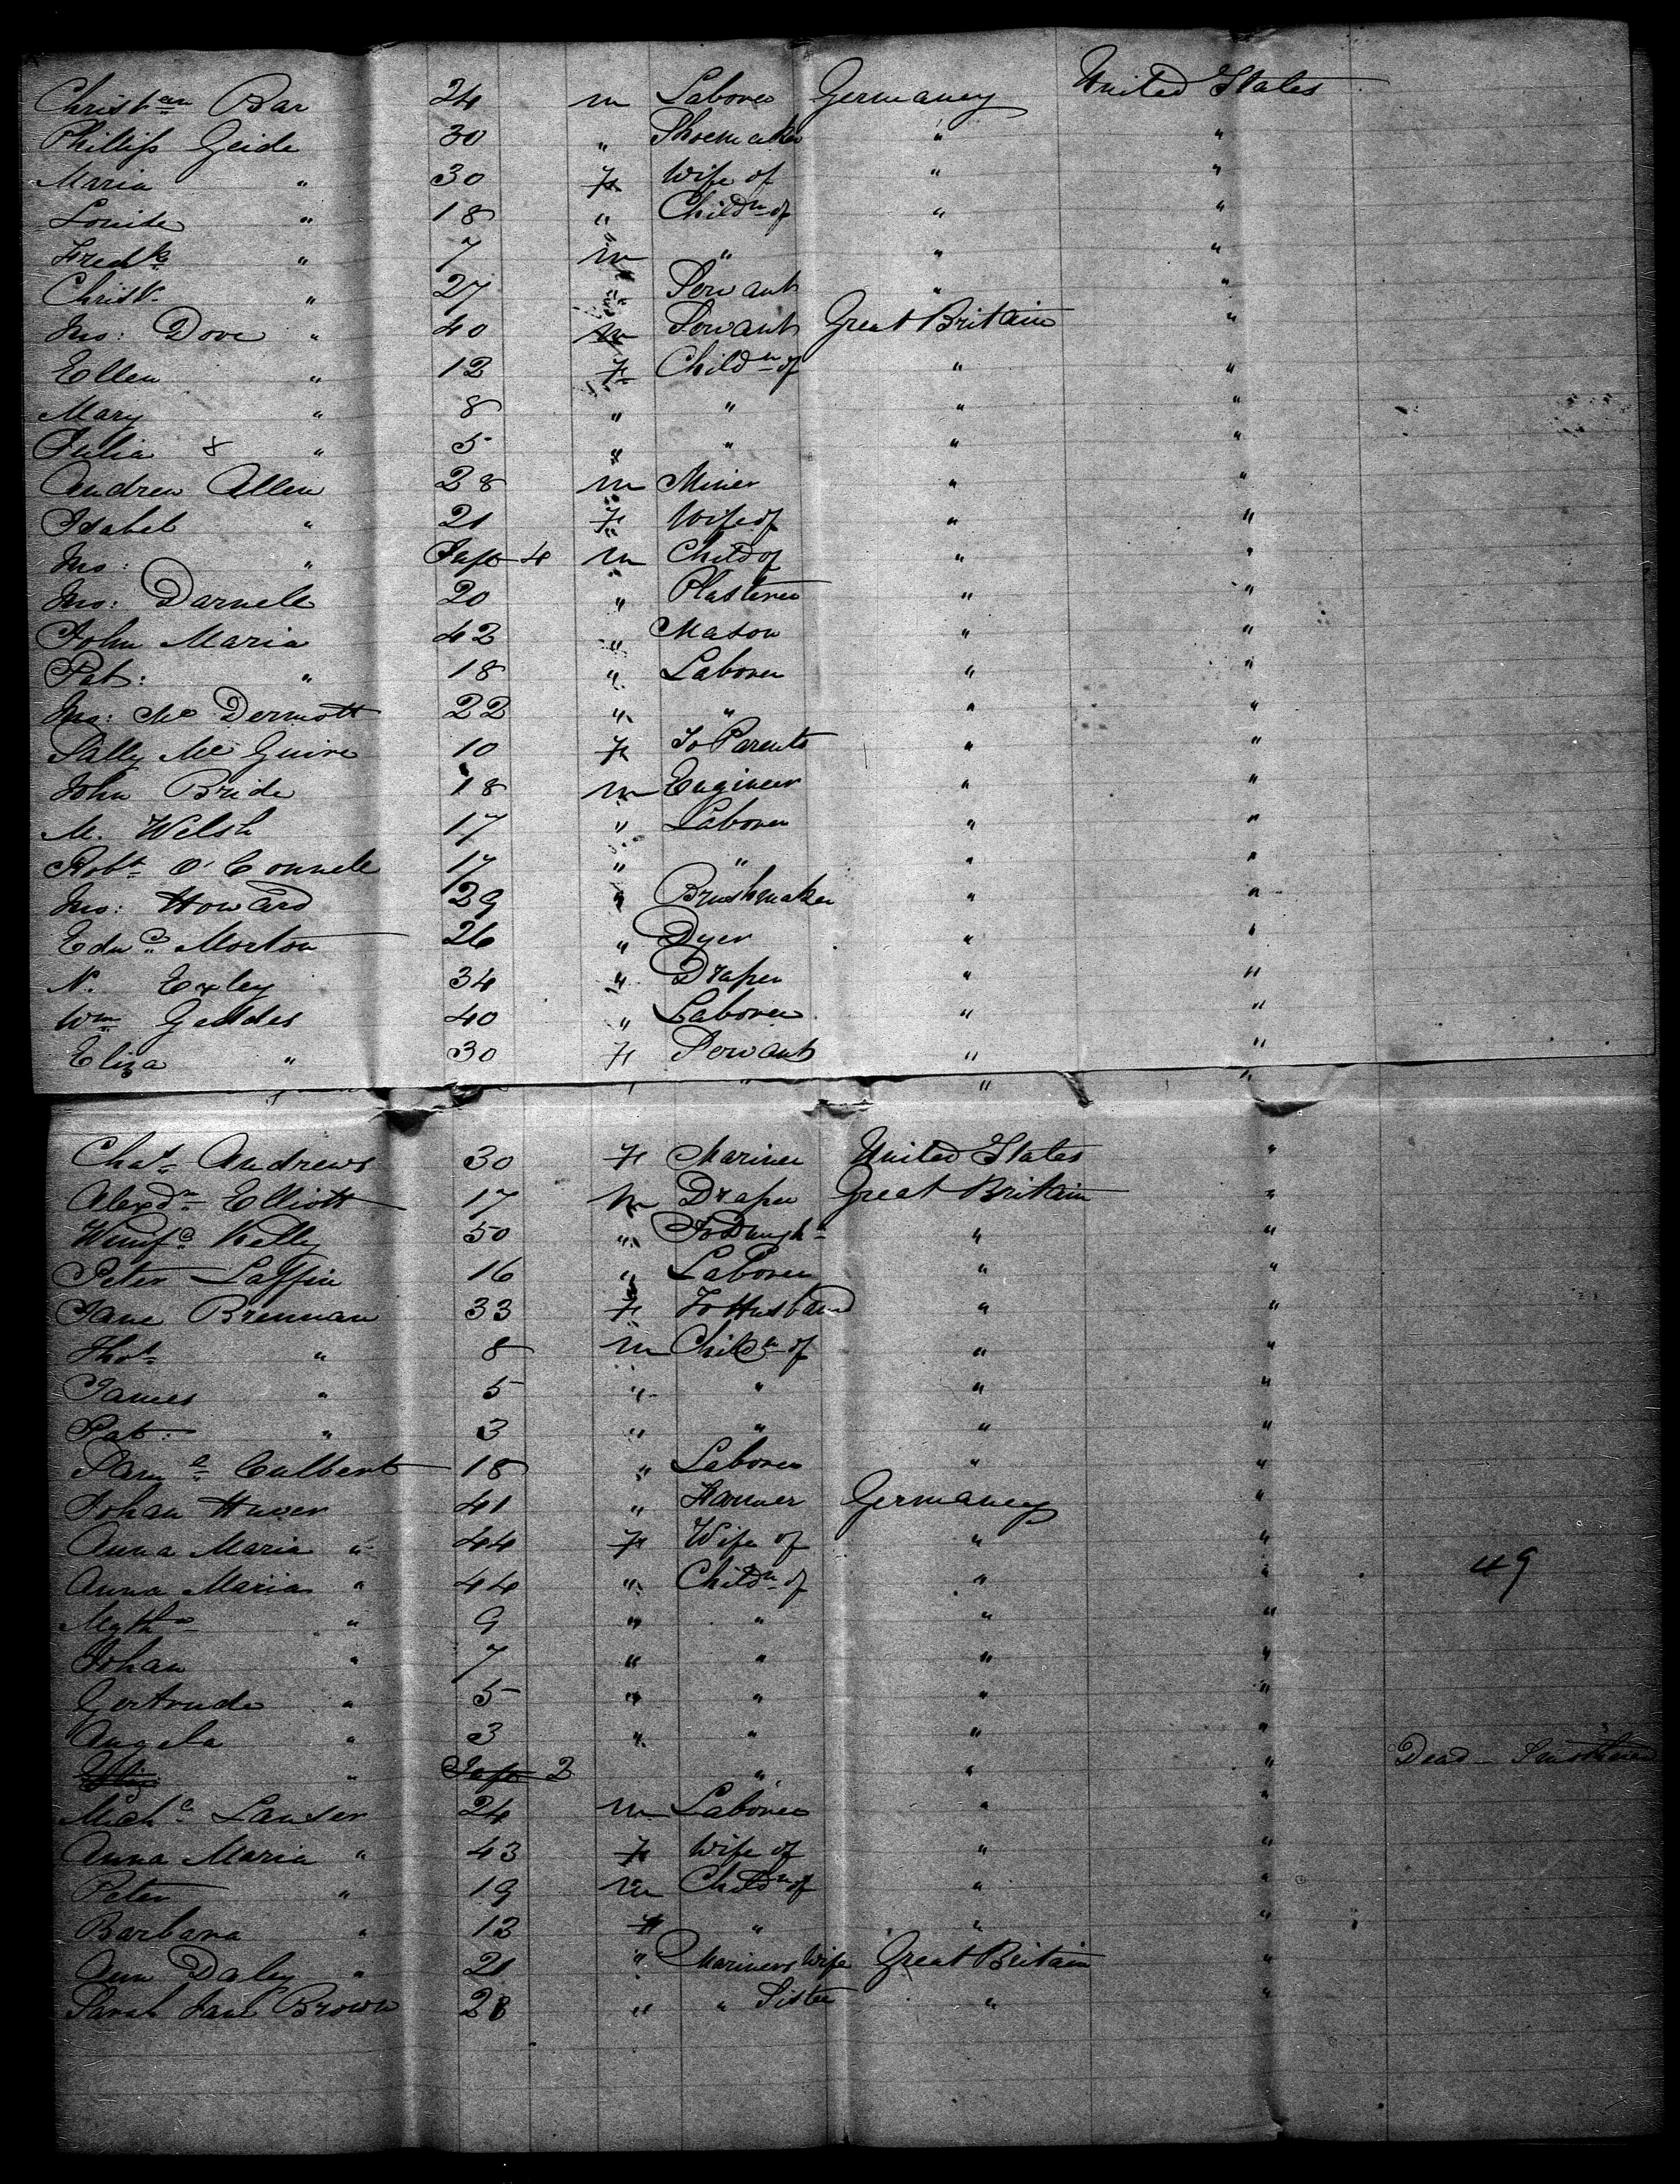 Christan Bar 24 m Laborer Germaney United States
Phillip Geide 30 " Shoemaker " "
Maria " 30 F Wife of " "
Louise " 18 " Childn of " "
Fredk " 7 m " " "
Christr " 27 " Servant " "
Jno: Dove " 40 m Servant Great Britain "
Ellen " 12 F Childn of " "
Mary " 8 " " " "
Julia & " 5 " " " "
Andrew Allen 28 m Miner " "
Isabel " 21 F Wife of " "
Jno: " Inft 4 m Child of " "
Jno: Darnell 20 " Plasterer " "
John Maria 42 " Mason " "
Pat: " 18 " Laborer " "
Jno: Mc Dermott 22 " " " "
Sally Mc Guire 10 F To Parents " "
John Bride 18 m Engineer " "
M. Welsh 17 " Laborer " "
Robt O'Connell 17 " " " "
Jno: Howard 29 " Brushmaker " "
Edwd Morton 26 " Dyer " "
N. Exley 34 " Draper " "
Wm Geddes 40 " Laborer " "
Eliza " 30 F Servant " "
" " " "
Chas Andrews 30 F Mariner United States "
Alexdr Elliott 17 m Draper Great Britain "
Winifd Kelly 50 " To Daugh " "
Peter Laffin 16 " Laborer " "
Jane Brennan 33 F To Husband " "
Thos " 8 m Childn of " "
James " 5 " " " "
Pat: " 3 " " " "
Saml Culbert 18 " Laborer " "
Johan Huver 41 " Farmer Germaney "
Anna Maria " 44 F Wife of " "
Anna Maria " 44 " Childn of " " 49
Myth " 9 " " " "
Johan " 7 " " " "
Gertrude " 5 " " " "
Angela " 3 " " " "
" Inft 2 " " " Dead - Smothered
Michl Lauser 24 m Laborer " "
Anna Maria " 43 F Wife of " "
Peter " 19 m Childn of " "
Barbara " 13 F " " "
Ann Daley " 21 " Mariners Wife Great Britain "
Sarah Jane Brown 28 " " Sister " "